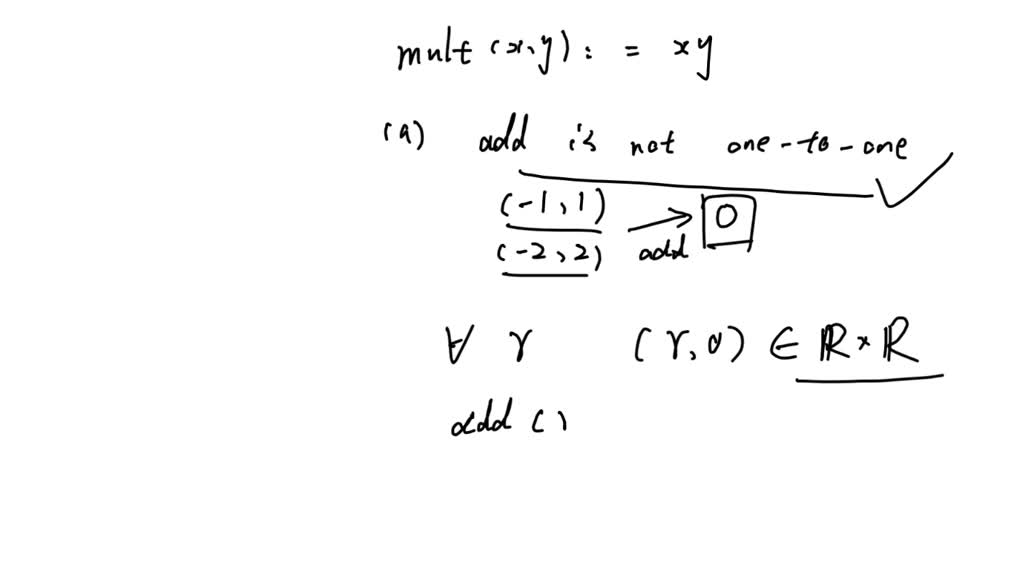 mult (x,y) : = xy
(a) add is not one-to-one
(-1,1)
(-2,2) add 0
∀ r (r,0) ∈ ℝ×ℝ
add ( )